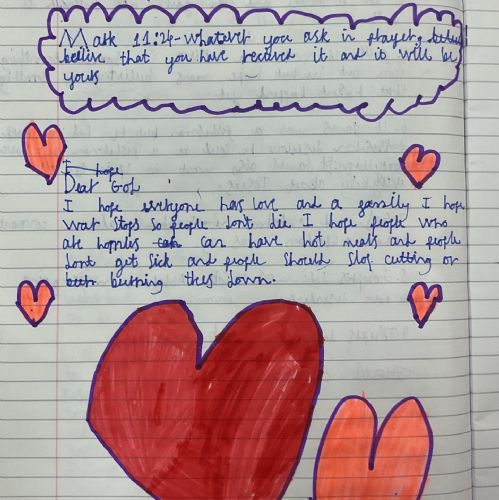 Mark 11:24-whatever you ask in prayer,
beelive that you have recieved it and it will be
yours
I hope
Dear God,
I hope everyone has love and a family I hope
war stops so people dont die I hope people who
are homles can have hot meals and people
dont get sick and people should stop cutting or
burning trees down.